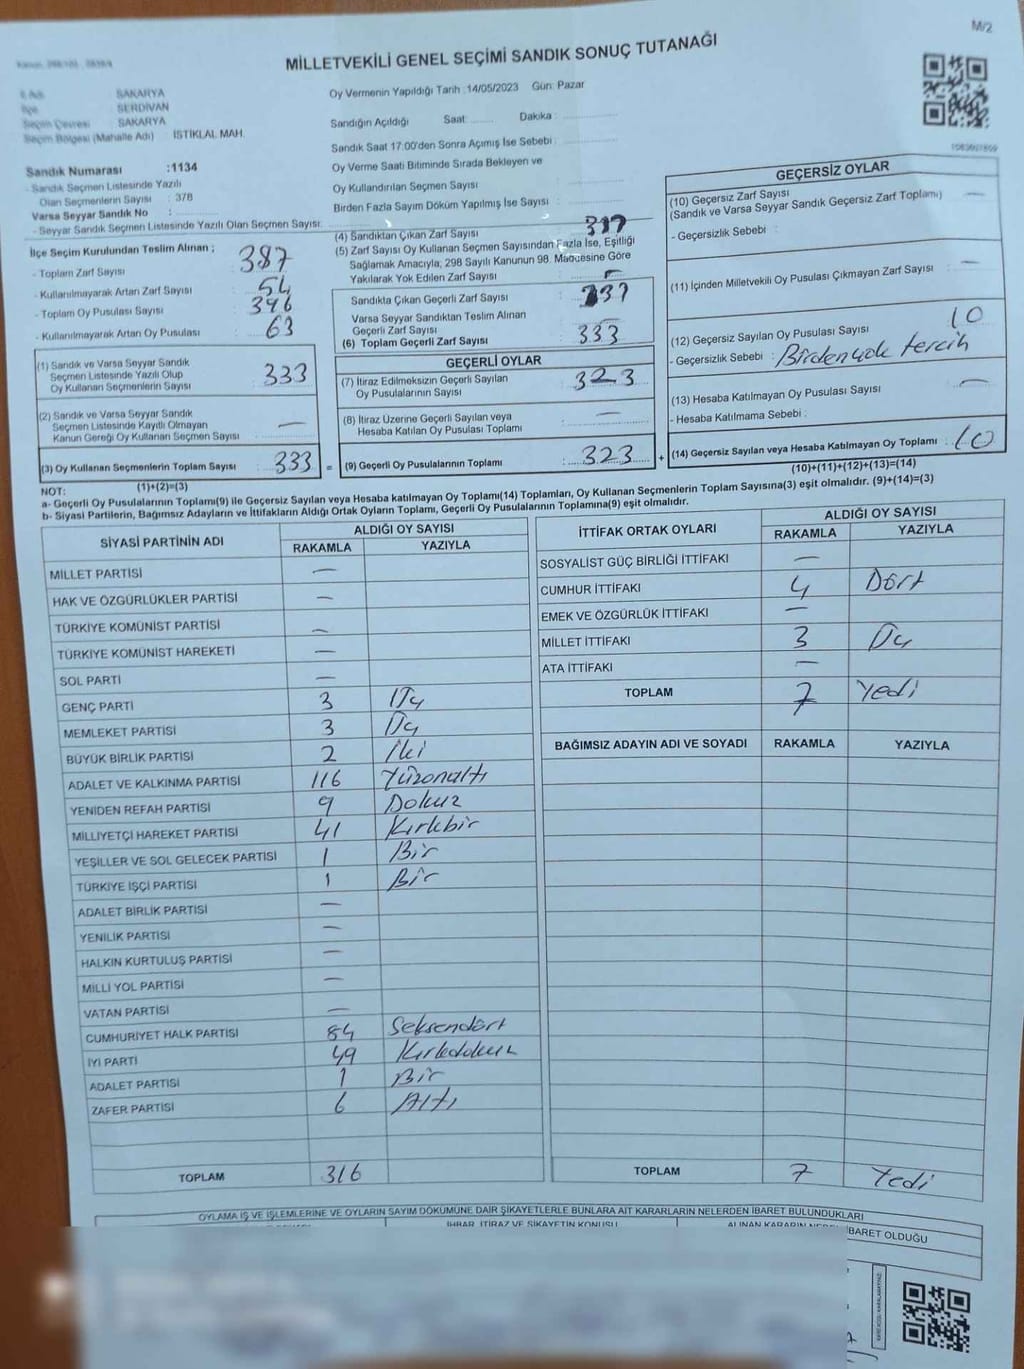 M/2
MİLLETVEKİLİ GENEL SEÇİMİ SANDIK SONUÇ TUTANAĞI
İl Adı SAKARYA
İlçe SERDİVAN
Seçim Çevresi SAKARYA
Seçim Bölgesi (Mahalle Adı) İSTİKLAL MAH.
Sandık Numarası :1134
- Sandık Seçmen Listesinde Yazılı
Olan Seçmenlerin Sayısı : 378
Varsa Seyyar Sandık No :
- Seyyar Sandık Seçmen Listesinde Yazılı Olan Seçmen Sayısı:
Oy Vermenin Yapıldığı Tarih :14/05/2023 Gün: Pazar
Sandığın Açıldığı Saat: Dakika :
Sandık Saat 17:00'den Sonra Açımış İse Sebebi :
Oy Verme Saati Bitiminde Sırada Bekleyen ve
Oy Kullandırılan Seçmen Sayısı :
Birden Fazla Sayım Döküm Yapılmış İse Sayısı :
İlçe Seçim Kurulundan Teslim Alınan ;
- Toplam Zarf Sayısı : 387
- Kullanılmayarak Artan Zarf Sayısı : 54
- Toplam Oy Pusulası Sayısı : 396
- Kullanılmayarak Artan Oy Pusulası : 63
(1) Sandık ve Varsa Seyyar Sandık
Seçmen Listesinde Yazılı Olup
Oy Kullanan Seçmenlerin Sayısı : 333
(2) Sandık ve Varsa Seyyar Sandık
Seçmen Listesinde Kayıtlı Olmayan
Kanun Gereği Oy Kullanan Seçmen Sayısı : —
(3) Oy Kullanan Seçmenlerin Toplam Sayısı : 333 =
(1)+(2)=(3)
(4) Sandıktan Çıkan Zarf Sayısı :
(5) Zarf Sayısı Oy Kullanan Seçmen Sayısından Fazla İse, Eşitliği
Sağlamak Amacıyla, 298 Sayılı Kanunun 98. Maddesine Göre
Yakılarak Yok Edilen Zarf Sayısı : —
Sandıkta Çıkan Geçerli Zarf Sayısı :
Varsa Seyyar Sandıktan Teslim Alınan
Geçerli Zarf Sayısı :
(6) Toplam Geçerli Zarf Sayısı : 333
GEÇERLİ OYLAR
(7) İtiraz Edilmeksizin Geçerli Sayılan
Oy Pusulalarının Sayısı : 323
(8) İtiraz Üzerine Geçerli Sayılan veya
Hesaba Katılan Oy Pusulası Toplamı : —
(9) Geçerli Oy Pusulalarının Toplamı : 323 +
GEÇERSİZ OYLAR
(10) Geçersiz Zarf Sayısı : —
(Sandık ve Varsa Seyyar Sandık Geçersiz Zarf Toplamı)
- Geçersizlik Sebebi :
(11) İçinden Milletvekili Oy Pusulası Çıkmayan Zarf Sayısı : —
(12) Geçersiz Sayılan Oy Pusulası Sayısı : 10
- Geçersizlik Sebebi : Birden çok tercih
(13) Hesaba Katılmayan Oy Pusulası Sayısı : —
- Hesaba Katılmama Sebebi :
(14) Geçersiz Sayılan veya Hesaba Katılmayan Oy Toplamı : 10
(10)+(11)+(12)+(13)=(14)
NOT:
a- Geçerli Oy Pusulalarının Toplamı(9) ile Geçersiz Sayılan veya Hesaba katılmayan Oy Toplamı(14) Toplamları, Oy Kullanan Seçmenlerin Toplam Sayısına(3) eşit olmalıdır. (9)+(14)=(3)
b- Siyasi Partilerin, Bağımsız Adayların ve İttifakların Aldığı Ortak Oyların Toplamı, Geçerli Oy Pusulalarının Toplamına(9) eşit olmalıdır.
SİYASİ PARTİNİN ADI ALDIĞI OY SAYISI
RAKAMLA YAZIYLA
MİLLET PARTİSİ —
HAK VE ÖZGÜRLÜKLER PARTİSİ —
TÜRKİYE KOMÜNİST PARTİSİ —
TÜRKİYE KOMÜNİST HAREKETİ —
SOL PARTİ —
GENÇ PARTİ 3 Üç
MEMLEKET PARTİSİ 3 Üç
BÜYÜK BİRLİK PARTİSİ 2 İki
ADALET VE KALKINMA PARTİSİ 116 Yüzonaltı
YENİDEN REFAH PARTİSİ 9 Dokuz
MİLLİYETÇİ HAREKET PARTİSİ 41 Kırkbir
YEŞİLLER VE SOL GELECEK PARTİSİ 1 Bir
TÜRKİYE İŞÇİ PARTİSİ 1 Bir
ADALET BİRLİK PARTİSİ —
YENİLİK PARTİSİ —
HALKIN KURTULUŞ PARTİSİ —
MİLLİ YOL PARTİSİ —
VATAN PARTİSİ —
CUMHURİYET HALK PARTİSİ 84 Seksendört
İYİ PARTİ 49 Kırkdokuz
ADALET PARTİSİ 1 Bir
ZAFER PARTİSİ 6 Altı
TOPLAM 316
İTTİFAK ORTAK OYLARI ALDIĞI OY SAYISI
RAKAMLA YAZIYLA
SOSYALİST GÜÇ BİRLİĞİ İTTİFAKI —
CUMHUR İTTİFAKI 4 Dört
EMEK VE ÖZGÜRLÜK İTTİFAKI —
MİLLET İTTİFAKI 3 Üç
ATA İTTİFAKI —
TOPLAM 7 Yedi
BAĞIMSIZ ADAYIN ADI VE SOYADI RAKAMLA YAZIYLA
TOPLAM 7 Yedi
OYLAMA İŞ VE İŞLEMLERİNE VE OYLARIN SAYIM DÖKÜMÜNE DAİR ŞİKAYETLERLE BUNLARA AİT KARARLARIN NELERDEN İBARET BULUNDUKLARI
İHBAR, İTİRAZ VE ŞİKAYETİN KONUSU ALINAN KARARIN İBARET OLDUĞU